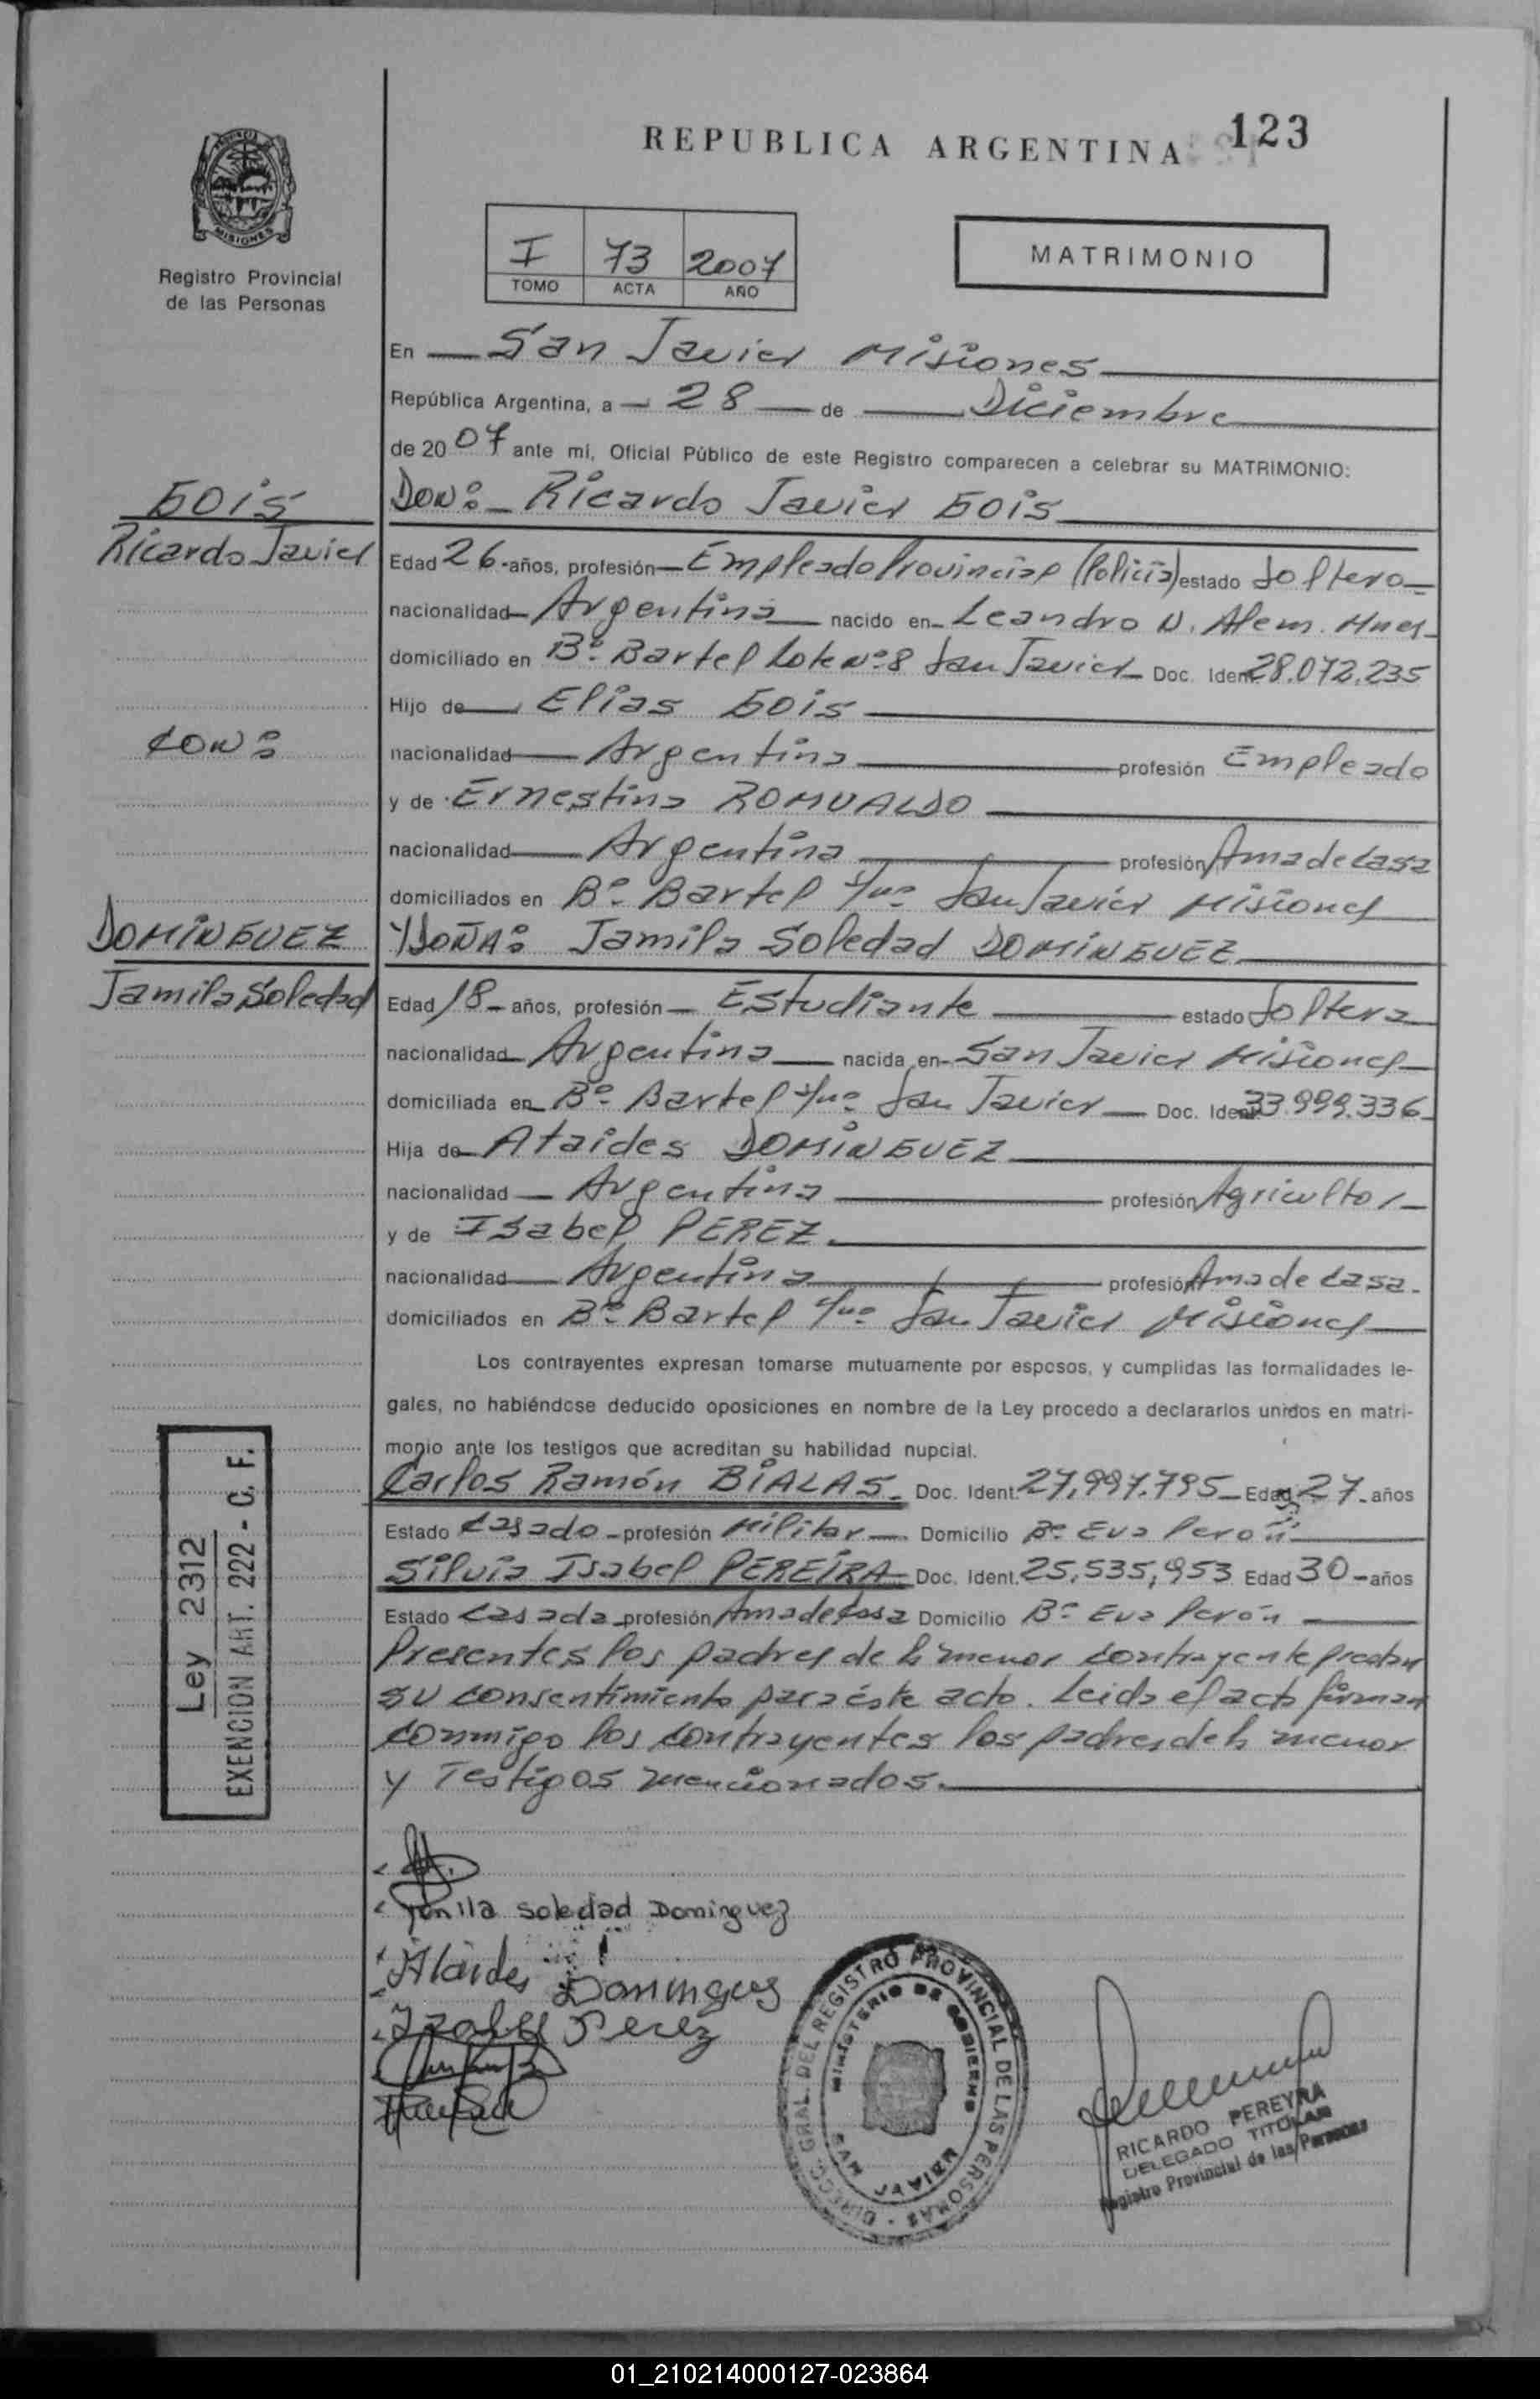 REPUBLICA ARGENTINA 123
MISIONES
Registro Provincial
de las Personas
I 73 2007
TOMO ACTA AÑO
MATRIMONIO
En San Javier Misiones
República Argentina, a 28 de Diciembre
de 2007 ante mi, Oficial Público de este Registro comparecen a celebrar su MATRIMONIO:
GOIS
Ricardo Javier
DON: Ricardo Javier GOIS
Edad 26 años, profesión Empleado Provincial (Policía) estado Soltero
nacionalidad Argentina nacido en Leandro N. Alem. Mnes
domiciliado en Bº Bartel Lote Nº 8 San Javier Doc. Ident. 28.072.235
Hijo de Elias GOIS
CON:
nacionalidad Argentina profesión Empleado
y de Ernestina ROMUALDO
nacionalidad Argentina profesión Ama de Casa
domiciliados en Bº Bartel s/nº San Javier Misiones
DOMINGUEZ
Jamila Soledad
Y DOÑA: Jamila Soledad DOMINGUEZ
Edad 18 años, profesión Estudiante estado Soltera
nacionalidad Argentina nacida en San Javier Misiones
domiciliada en Bº Bartel s/nº San Javier Doc. Ident. 33.999.336
Hija de Ataides DOMINGUEZ
nacionalidad Argentina profesión Agricultor
y de Isabel PEREZ
nacionalidad Argentina profesión Ama de Casa.
domiciliados en Bº Bartel s/nº San Javier Misiones
Los contrayentes expresan tomarse mutuamente por esposos, y cumplidas las formalidades le-
gales, no habiéndose deducido oposiciones en nombre de la Ley procedo a declararlos unidos en matri-
monio ante los testigos que acreditan su habilidad nupcial.
Carlos Ramón BIALAS Doc. Ident. 27,997.795 Edad 27 años
Estado Casado profesión Militar Domicilio Bº Eva Perón
Silvia Isabel PEREIRA Doc. Ident. 25,535,953 Edad 30 años
Estado Casada profesión Ama de Casa Domicilio Bº Eva Perón
Presentes los padres de la menor contrayente prestan
su consentimiento para éste acto. Leida el acta firman
conmigo los contrayentes los padres de la menor
y Testigos mencionados.
Ley 2312
EXENCION ART. 222 - C. F.
Jamila Soledad Dominguez
Ataides Dominguez
Izabel Perez
DIRECC. GRAL. DEL REGISTRO PROVINCIAL DE LAS PERSONAS
MINISTERIO DE GOBIERNO
SAN JAVIER
RICARDO PEREYRA
DELEGADO TITULAR
Registro Provincial de las Personas
01_210214000127-023864